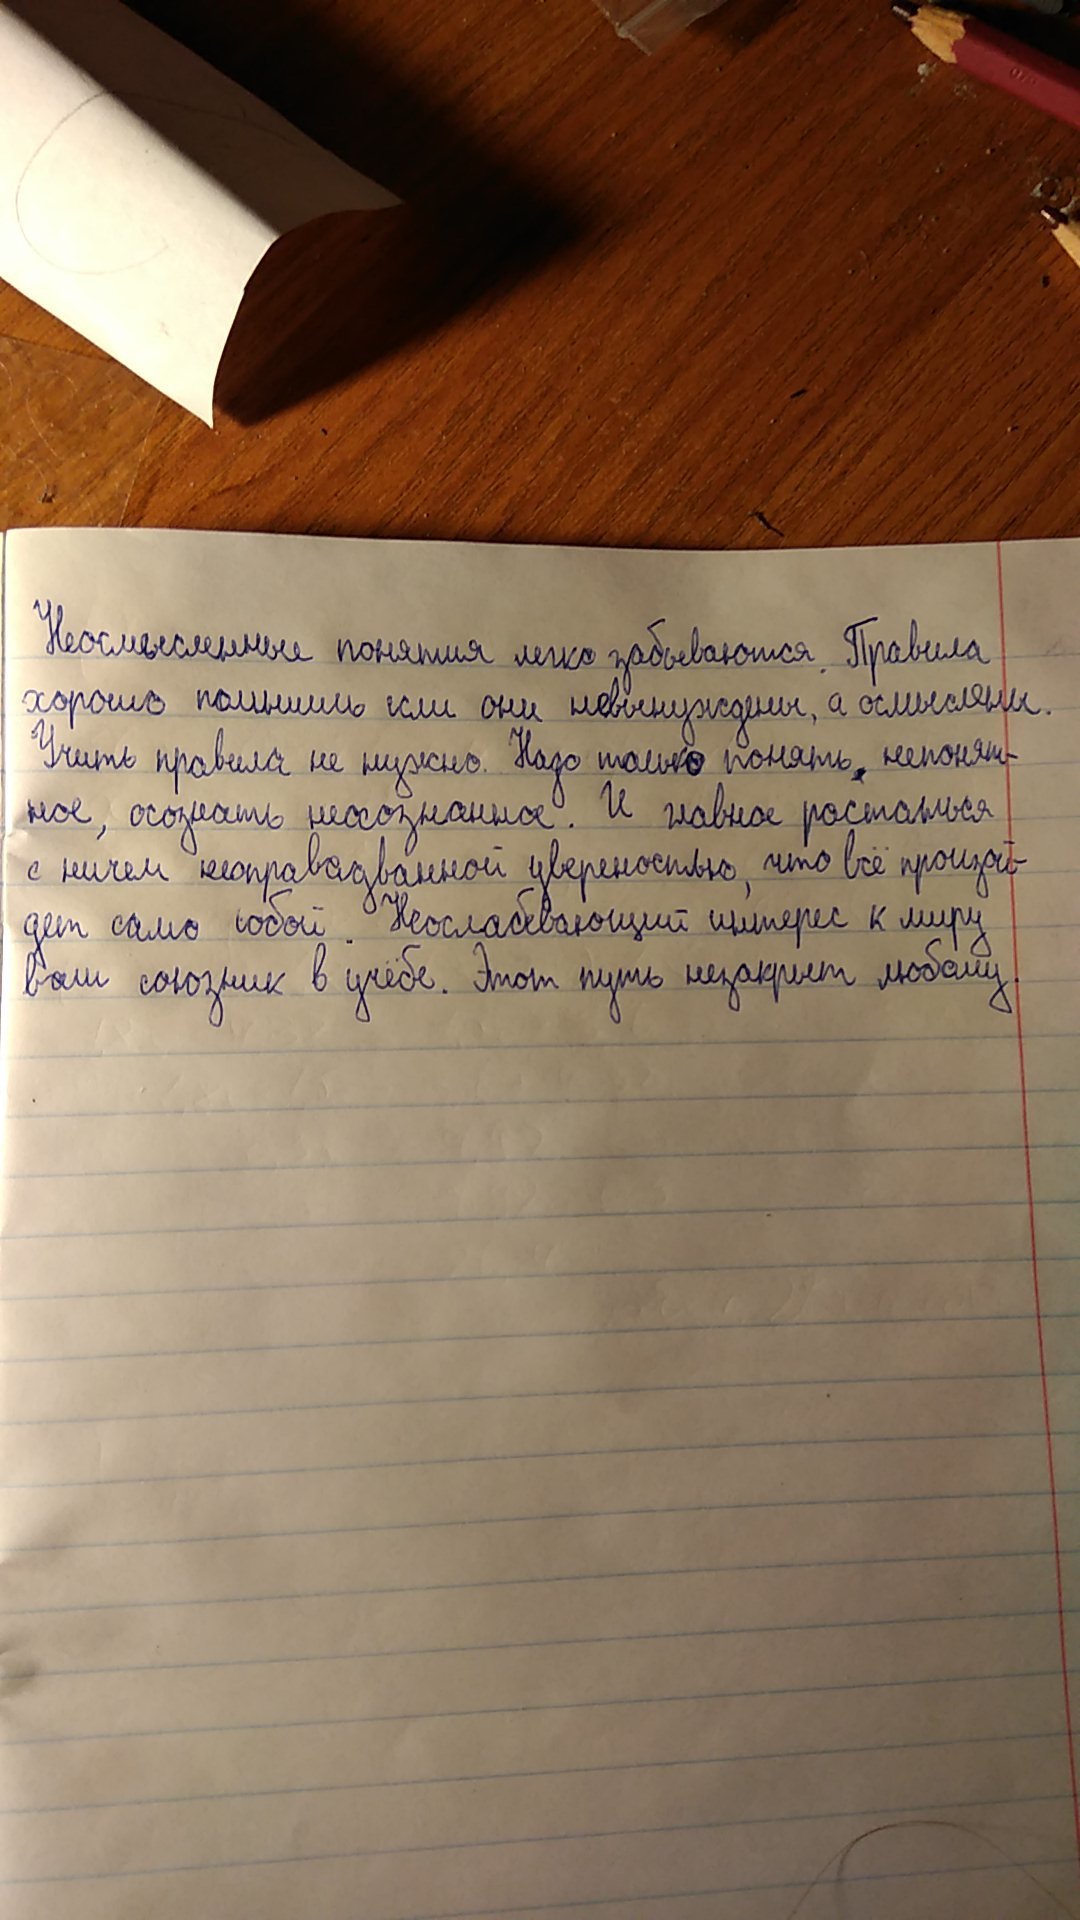 Неосмысленные понятия легко забываются. Правила
хорошо помнишь если они невынуждены, а осмысляны.
Учить правила не нужно. Надо только понять, непонят-
ное, осознать неосознанное. И главное растаться
с ничем неоправадзванной увереностью, что всё произой-
дет само собой. Неослабевающий интерес к миру
ваш союзник в учёбе. Этот путь незакрыт любому.